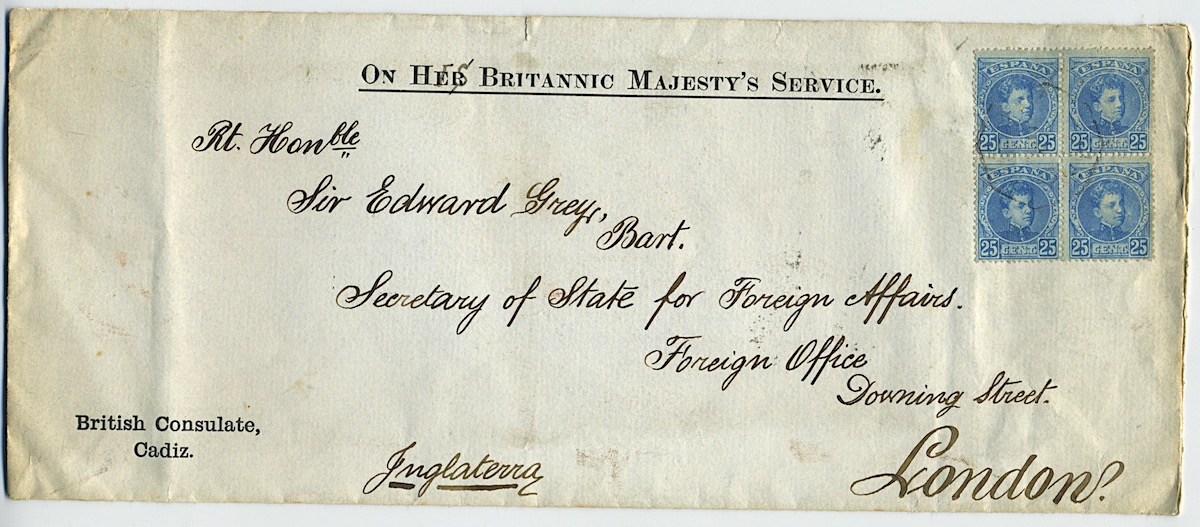 On Her Britannic Majesty's Service.
Rt. Honble
Sir Edward Grey,
Bart.
Secretary of State for Foreign Affairs.
Foreign Office
Downing Street.
London.
Inglaterra
British Consulate,
Cadiz.
ESPAÑA
25 CENT. 25
ESPAÑA
25 CENT. 25
ESPAÑA
25 CENT. 25
ESPAÑA
25 CENT. 25